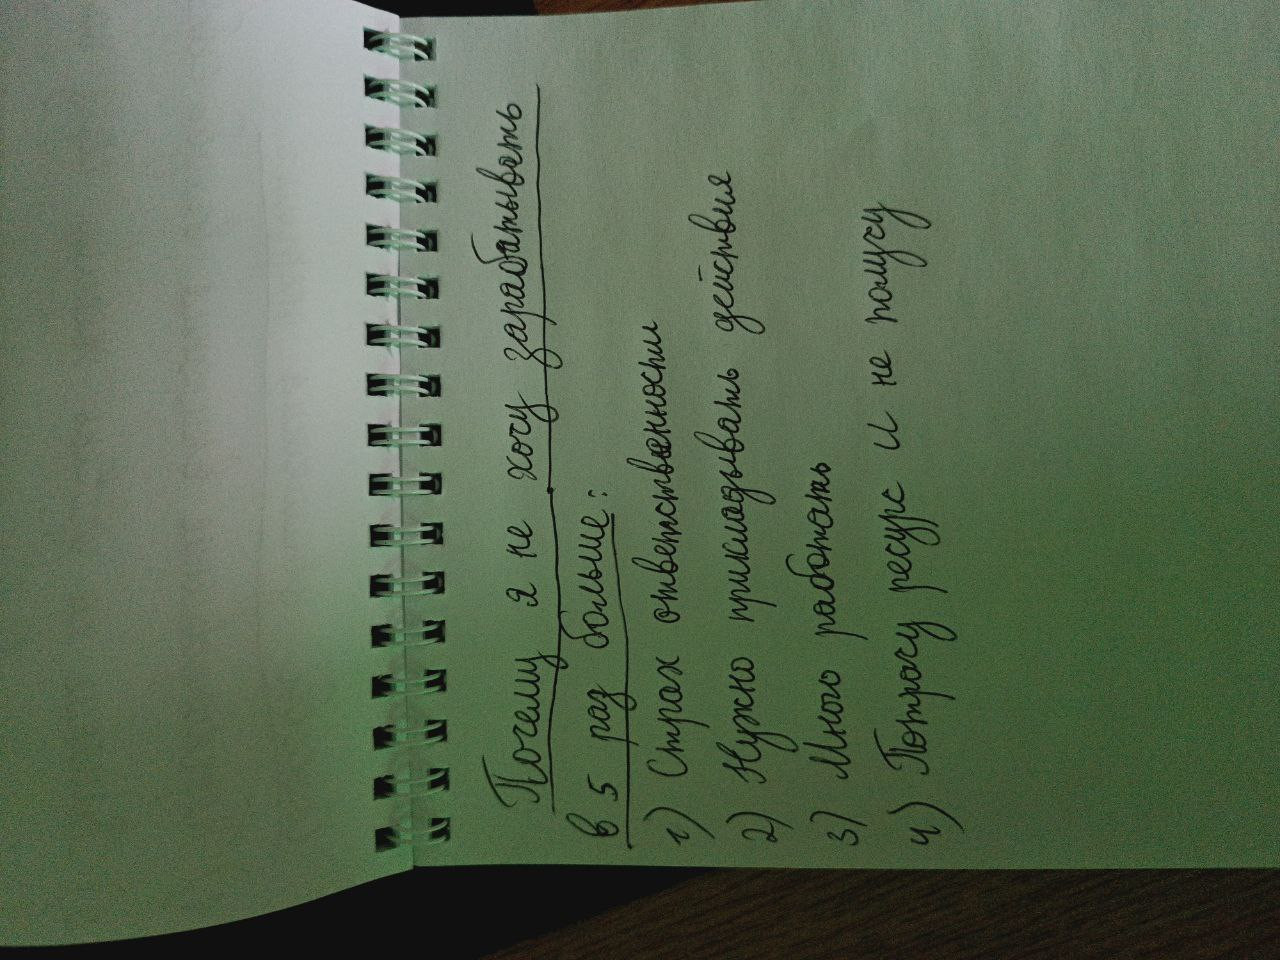 Почему я не хочу зарабатывать
в 5 раз больше:
1) Страх ответственности
2) Нужно прикладывать действия
3) Много работать
4) Потрачу ресурс и не получу